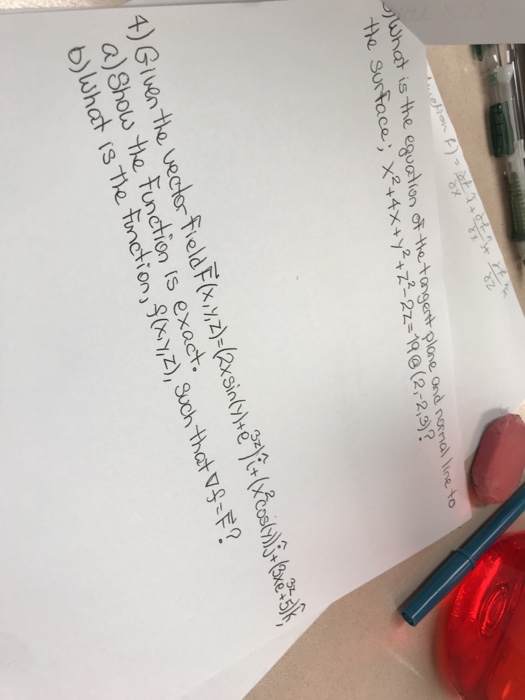 What is the equation of the tangent plane and normal line to
the surface; x²+4x+y²+z²-2z=19@(2,-2,3)?
4) Given the vector field F⃗(x,y,z)=(2xsin(y)+e³ᶻ)î+(x²cos(y))ĵ+(3xe³ᶻ+5)k̂,
a) Show the function is exact.
b) What is the function, f(x,y,z), such that ∇f=F⃗?